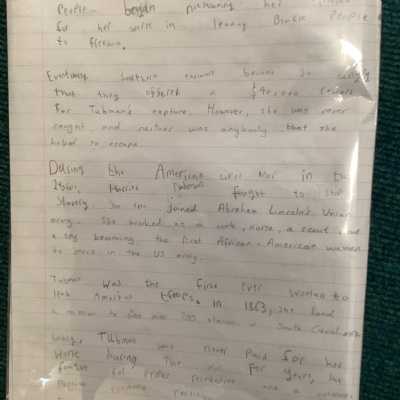 People began nicknaming her
for her work in leading Black People
to freedom.
Eventually Southern became so angry
that they offered a $40,000 reward
for Tubman's capture. However, she was never
caught and neither was anybody that she
helped to escape.
During the American civil War in the
1860s, Harriet Tubman fought to stop
Slavery. She joined Abraham Lincoln's Union
army. She worked as a cook, nurse, a scout and
a spy becoming the first African-American women
to serve in the US army.
Tubman was the first ever woman to
lead American troops. in 1863, she lead
a mission to free over 700 slaves in South Carolina
Sadly, Tubman was never Paid for her
work during the War. For years, she
fought for Proper recognition and a
Pension eventually